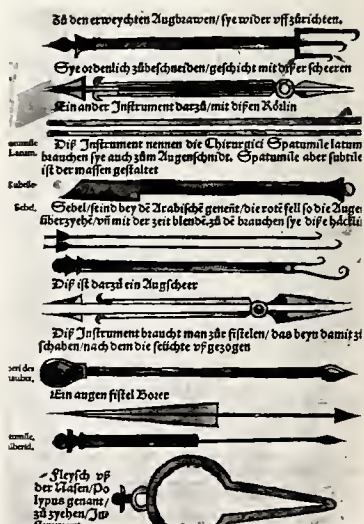 Zů den erweychten Augbrawen/ sye wider vff zůrichten.
Sye ordenlich zůbeschneiden/ geschicht mit diser scheeren
Ein ander Instrument darzů/ mit disen Rötlin
Spatumille Latum.
Diß Instrument nennen die Chirurgici Spatumile latum
brauchen sye auch zům Augenschnidt. Spatumile aber subtile
ist der massen gestaltet
Subtile
Sebel.
Sebel/ seind bey dē Arabischē genent/ die rotē fell so die Augen
überzyehē/ vñ mit der zeit blendē. zů dē brauchen sye dise häcklin
Diß ist darzů ein Augscheer
Diß Instrument braucht man zůr fistelen/ das beyn damit zů
schaben/ nach dem die feüchte vß gezogen
Ein augen fistel Borer
Fleysch vß
der Nasen/ Po
lypus genant/
zů zyehen/ In